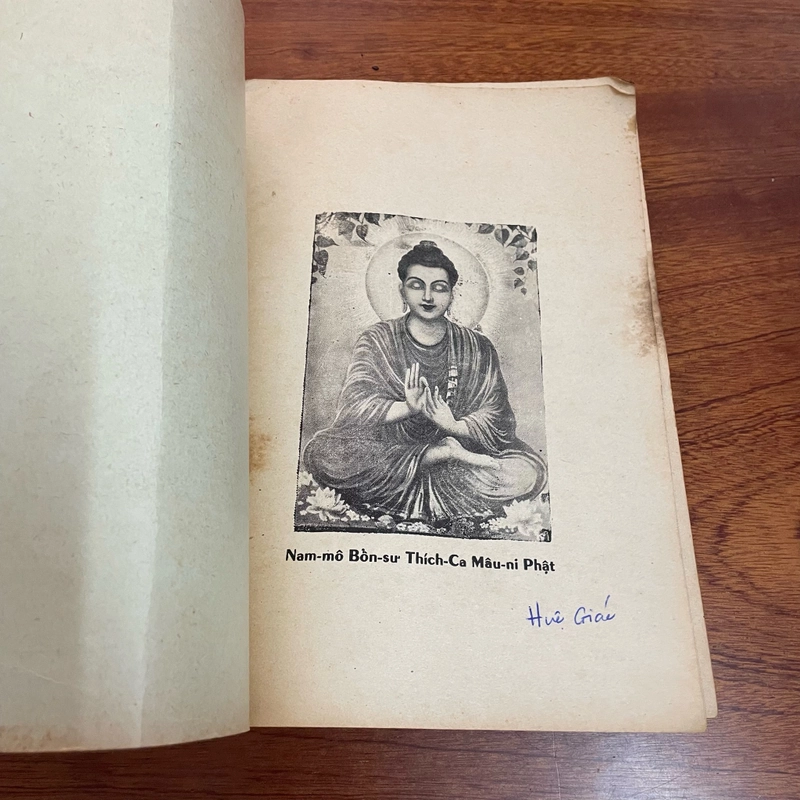 Nam-mô Bổn-sư Thích-Ca Mâu-ni Phật
Huệ Giác